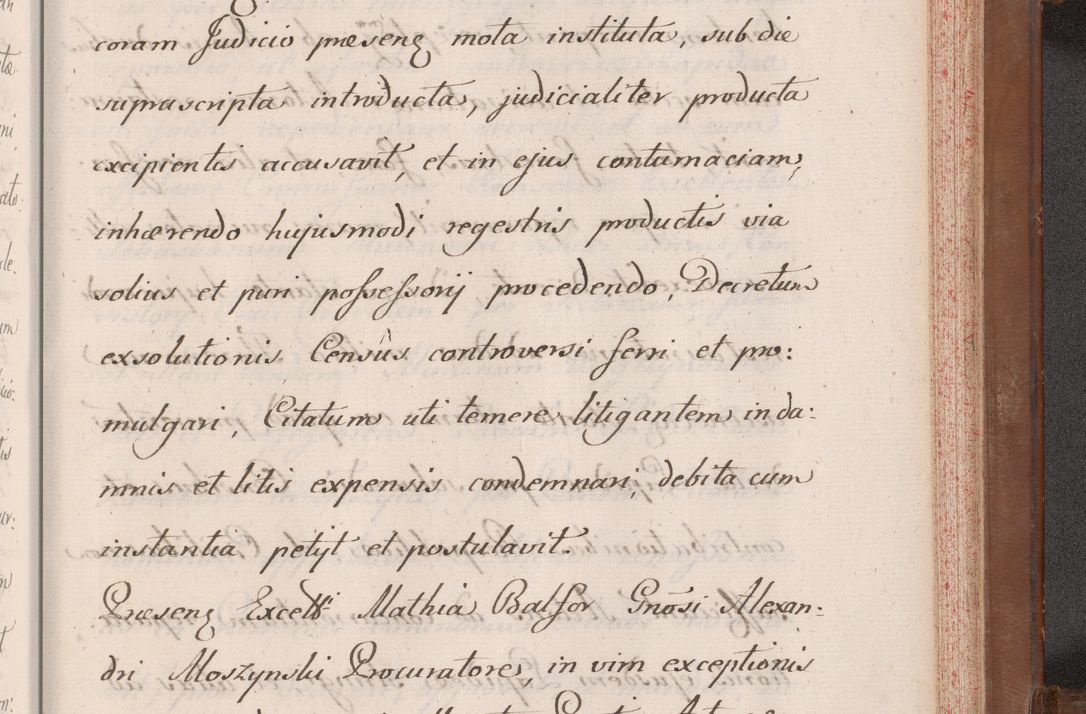 coram Judicio præsenꝫ mota instituta, sub die
suprascripta introducta, judicialiter producta
excipientis accusavit, et in ejus contumaciam,
inhærendo hujusmodi regestris productis via
solius et puri possessorij procedendo, Decretum
exsolutionis Censûs controversi ferri et pro:
mulgari, Citatum uti temere litigantem in da:
mnis et litis expensis condemnari, debita cum
instantia petijt et postulavit.
Præsenꝫ Excelltt Mathia Balsor Gnōsi Alexan:
dri Moszynski Procuratore, in vim exceptionis